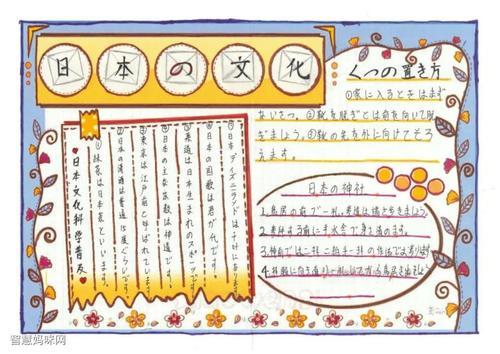 日本の文化
くつの置き方
①家に入るときはまず
ないさつ。②靴を脱ぎとは前を向いて脱
ぎましょう。③靴の先を外に向けてそろ
えます。
⑦日本ディズニーランドは千叶にあります。
⑥日本の国歌は君が代です。
⑤柔道は日本生まれのスポーツです。
④日本の主な宗教は神道です。
③東京は江戸前と呼ばれています。
②日本の清酒は普通15度ぐらいです。
①は日本家といいます。
♥日本文化科学普友♥
日本の神社
1.鳥居の前で一礼、参道は端を歩きましょう
2.参拝する前に手水舎で身を清めます
3.神前では二拝二拍手一拝の作法で
4.拝殿に向き直り一礼してから鳥居を出ましょう
智慧妈咪网